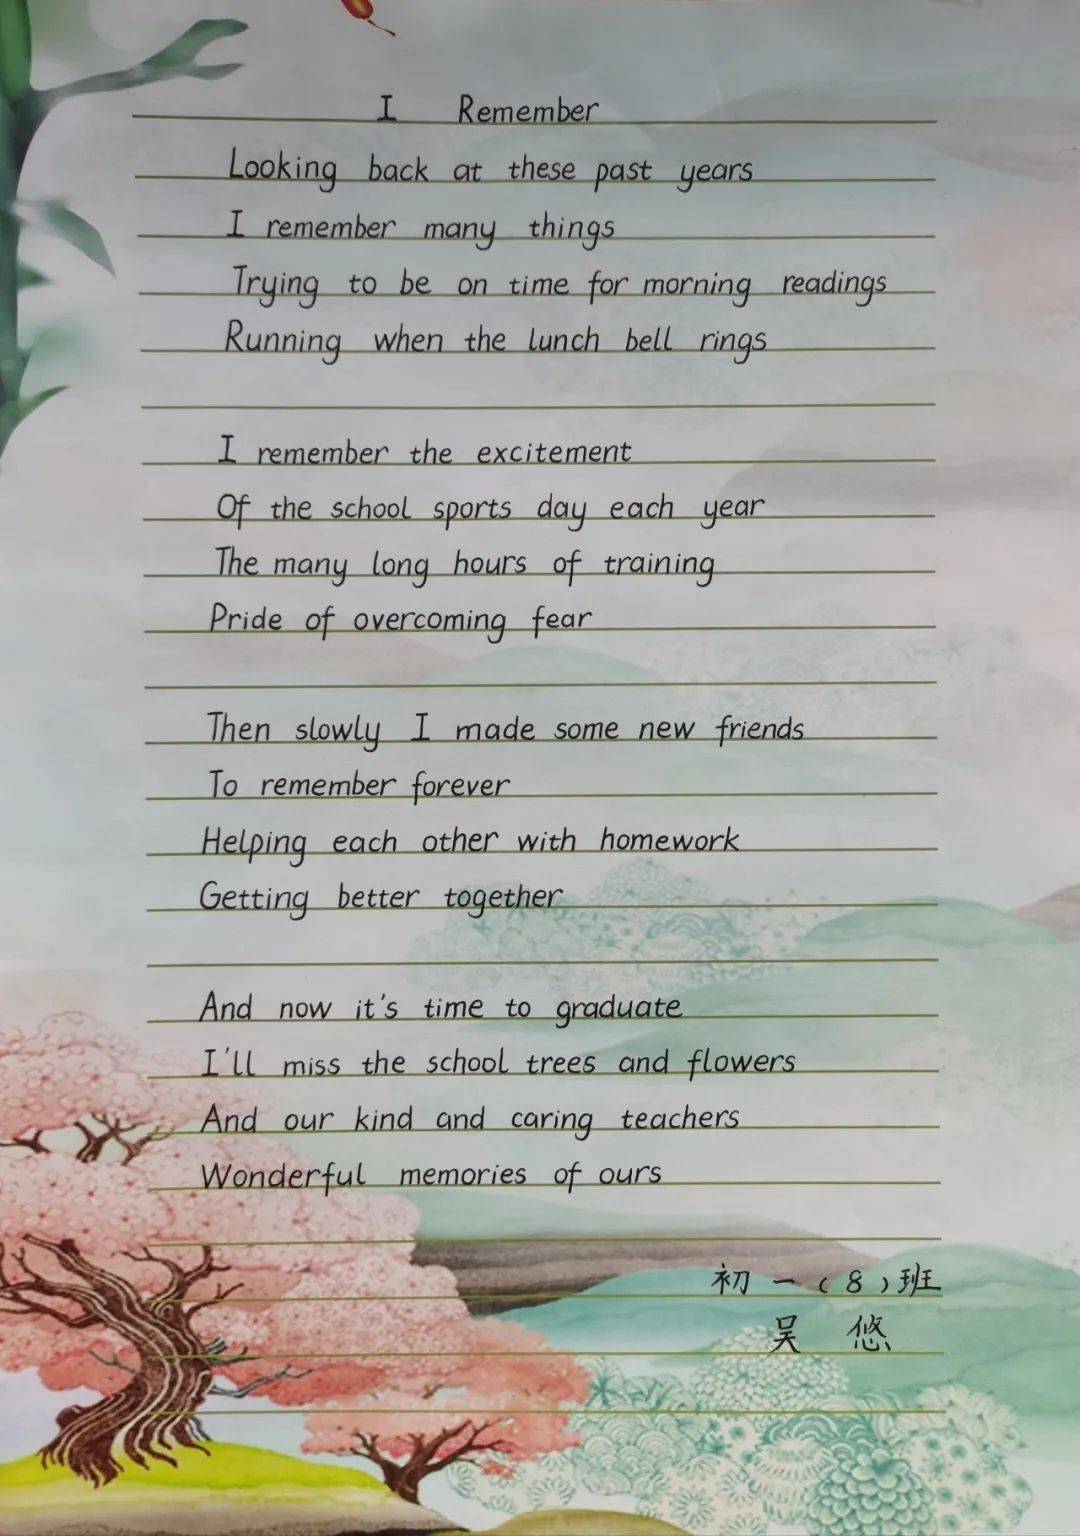 I Remember
Looking back at these past years
I remember many things
Trying to be on time for morning readings
Running when the lunch bell rings
I remember the excitement
Of the school sports day each year
The many long hours of training
Pride of overcoming fear
Then slowly I made some new friends
To remember forever
Helping each other with homework
Getting better together
And now it's time to graduate
I'll miss the school trees and flowers
And our kind and caring teachers
Wonderful memories of ours
初一(8)班
吴悠